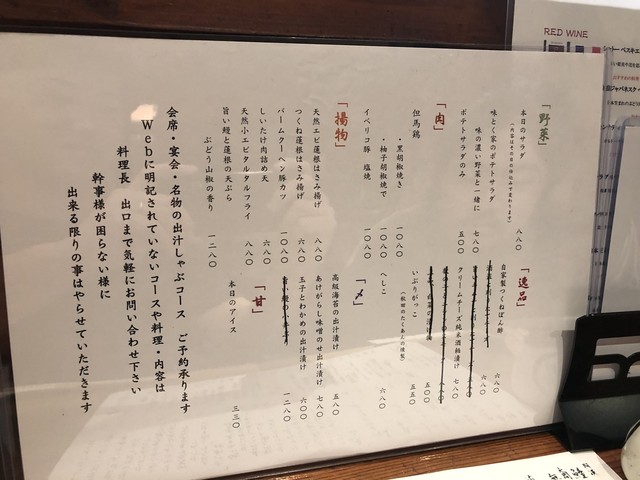 「野菜」
本日のサラダ 八八〇
(内容はその日の仕込みで変わります)
味とく家のポテトサラダ
味の濃い野菜と一緒に 七八〇
ポテトサラダのみ 五〇〇
「肉」
但馬鶏
・黒胡椒焼き 一〇八〇
・柚子胡椒焼で 一〇八〇
イベリコ豚 塩焼 一〇八〇
「揚物」
天然エビ蓮根はさみ揚げ 八八〇
つくね蓮根はさみ揚げ 六八〇
バームクーヘン豚カツ 一〇八〇
しいたけ肉詰め天 六八〇
天然小エビタルタルフライ 八八〇
旨い鰻と蓮根の天ぷら
ぶどう山椒の香り 一二八〇
「逸品」
自家製つくねぽん酢 六八〇
クリームチーズ純米酒粕漬け 七八〇
五〇〇
いぶりがっこ 五五〇
(秋田のたくあんの燻製)
へしこ 六八〇
「〆」
高級海苔の出汁漬け 五八〇
あけがらし味噌のせ出汁漬け 七八〇
玉子とわかめの出汁漬け 六〇〇
一二八〇
「甘」
本日のアイス 三三〇
会席・宴会・名物の出汁しゃぶコース ご予約承ります
Webに明記されていないコースや料理・内容は
料理長 出口まで気軽にお問い合わせ下さい
幹事様が困らない様に
出来る限りの事はやらせていただきます
RED WINE